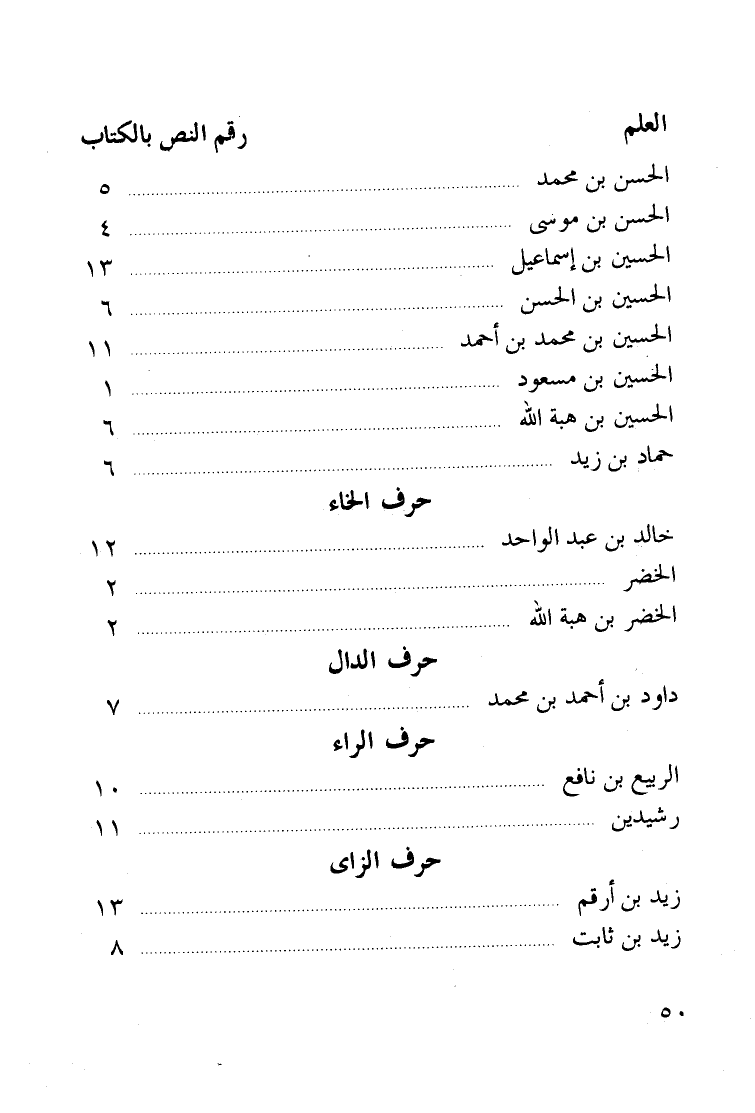 العلم رقم النص بالكتاب
الحسن بن محمد ................ ٥
الحسن بن موسى ................ ٤
الحسين بن إسماعيل ................ ١٣
الحسين بن الحسن ................ ٦
الحسين بن محمد بن أحمد ................ ١١
الحسين بن مسعود ................ ١
الحسين بن هبة الله ................ ٦
حماد بن زيد ................ ٦
حرف الخاء
خالد بن عبد الواحد ................ ١٢
الخضر ................ ٢
الخضر بن هبة الله ................ ٢
حرف الدال
داود بن أحمد بن محمد ................ ٧
حرف الراء
الربيع بن نافع ................ ١٠
رشيدين ................ ١١
حرف الزاى
زيد بن أرقم ................ ١٣
زيد بن ثابت ................ ٨
٥٠